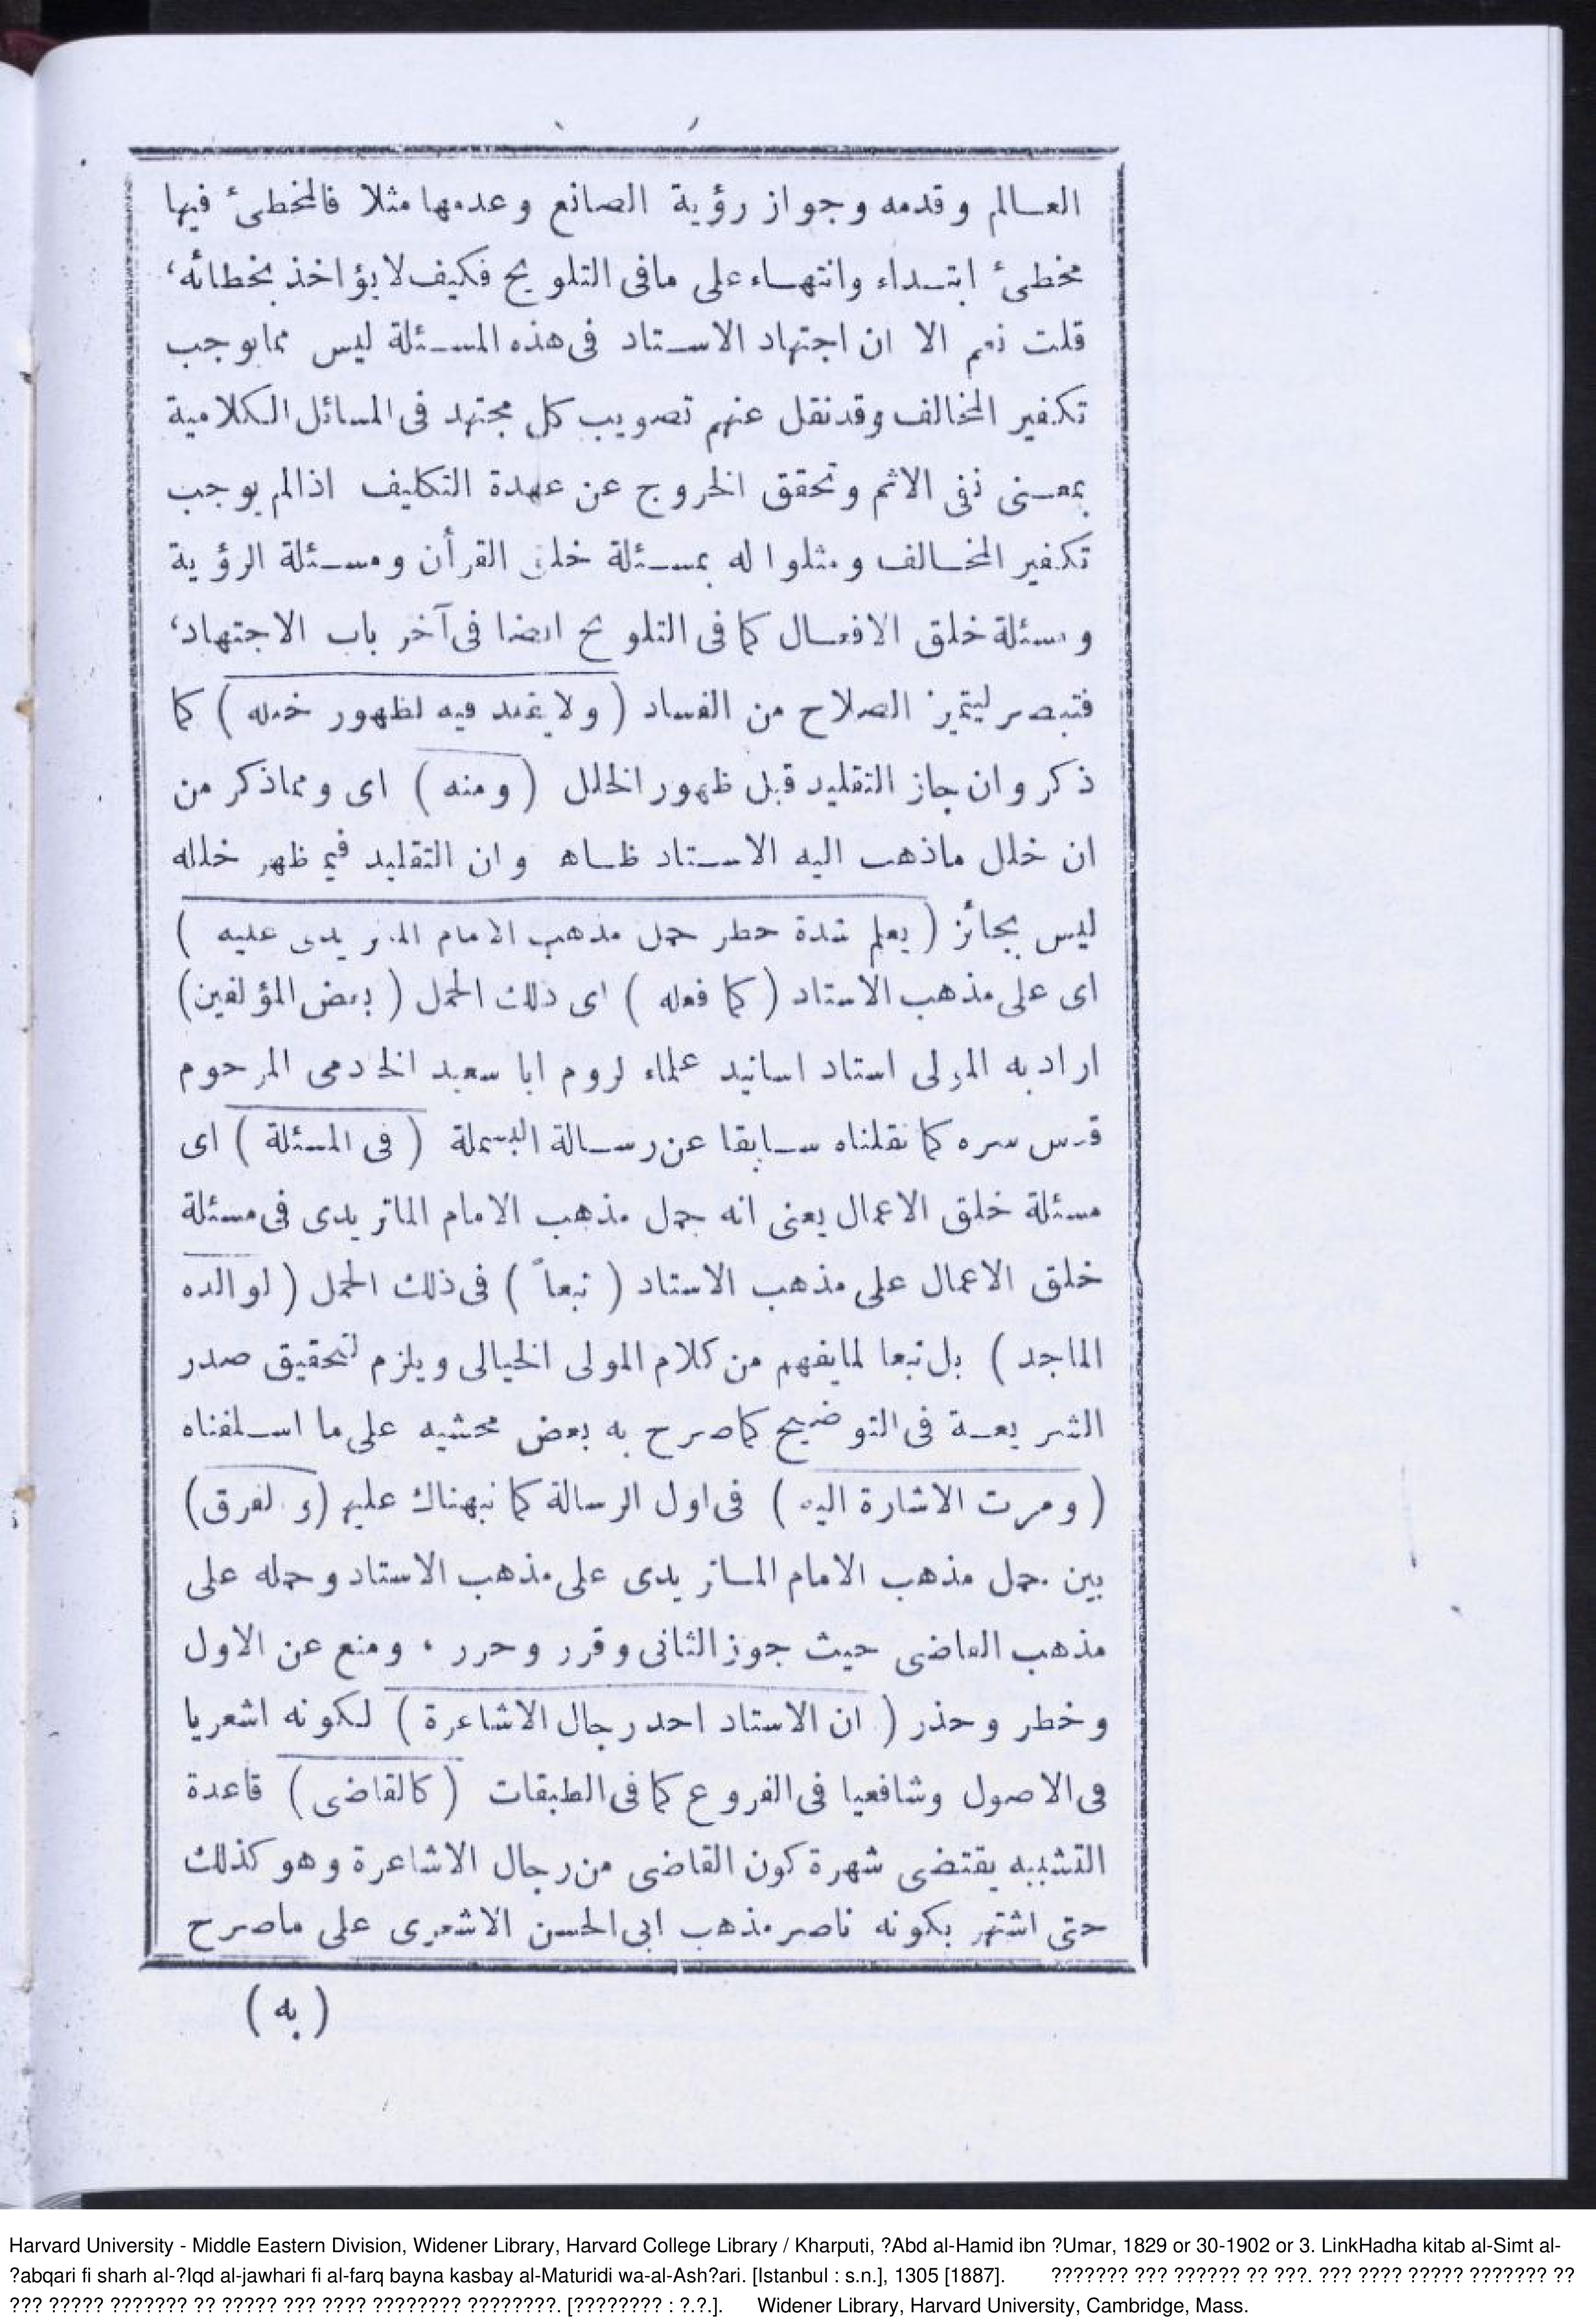 العالم وقدمه وجواز رؤية الصانع وعدمها مثلا فالمخطئ فيها
مخطئ ابتداء وانتهاء على مافى التلويح فكيف لا يؤاخذ بخطائه،
قلت نعم الا ان اجتهاد الاستاد فى هذه المسئلة ليس ممايوجب
تكفير المخالف وقدنقل عنهم تصويب كل مجتهد فى المسائل الكلامية
بمعنى نفى الاثم وتحقق الخروج عن عهدة التكليف اذالم يوجب
تكفير المخالف ومثلوا له بمسئلة خلق القرأن ومسئلة الرؤية
ومسئلة خلق الافعال كما فى التلويح ايضا فى آخر باب الاجتهاد،
فتبصر ليتميز الصلاح من الفساد (ولا يقلد فيه لظهور خلله) كما
ذكر وان جاز التقليد قبل ظهور الخلل (ومنه) اى ومماذكر من
ان خلل ماذهب اليه الاستاد ظاهر وان التقليد فيما ظهر خلله
ليس بجائز (يعلم شدة خطر حمل مذهب الامام الماتريدى عليه)
اى على مذهب الاستاد (كما فعله) اى ذلك الحمل (بعض المؤلفين)
اراد به المولى استاد اسانيد علماء الروم ابا سعيد الخادمى المرحوم
قدس سره كما نقلناه سابقا عن رسالة البسملة (فى المسئلة) اى
مسئلة خلق الاعمال يعنى انه حمل مذهب الامام الماتريدى فى مسئلة
خلق الاعمال على مذهب الاستاد (تبعاً) فى ذلك الحمل (لوالده
الماجد) بل تبعا لمايفهم من كلام المولى الخيالى ويلزم لتحقيق صدر
الشريعة فى التوضيح كماصرح به بعض محشيه على ما اسلفناه
(ومرت الاشارة اليه) فى اول الرسالة كما نبهناك عليه (والفرق)
بين حمل مذهب الامام الماتريدى على مذهب الاستاد وحمله على
مذهب القاضى حيث جوز الثانى وقرر وحرر، ومنع عن الاول
وخطر وحذر (ان الاستاد احد رجال الاشاعرة) لكونه اشعريا
فى الاصول وشافعيا فى الفروع كما فى الطبقات (كالقاضى) قاعدة
التشبيه يقتضى شهرة كون القاضى من رجال الاشاعرة وهو كذلك
حتى اشتهر بكونه ناصر مذهب ابى الحسن الاشعرى على ماصرح
(به)
Harvard University - Middle Eastern Division, Widener Library, Harvard College Library / Kharputi, ?Abd al-Hamid ibn ?Umar, 1829 or 30-1902 or 3. LinkHadha kitab al-Simt al-
?abqari fi sharh al-?Iqd al-jawhari fi al-farq bayna kasbay al-Maturidi wa-al-Ash?ari. [Istanbul : s.n.], 1305 [1887]. ??????? ??? ?????? ?? ???. ??? ???? ????? ??????? ??
??? ????? ??????? ?? ????? ??? ???? ???????? ????????. [???????? : ?.?.]. Widener Library, Harvard University, Cambridge, Mass.